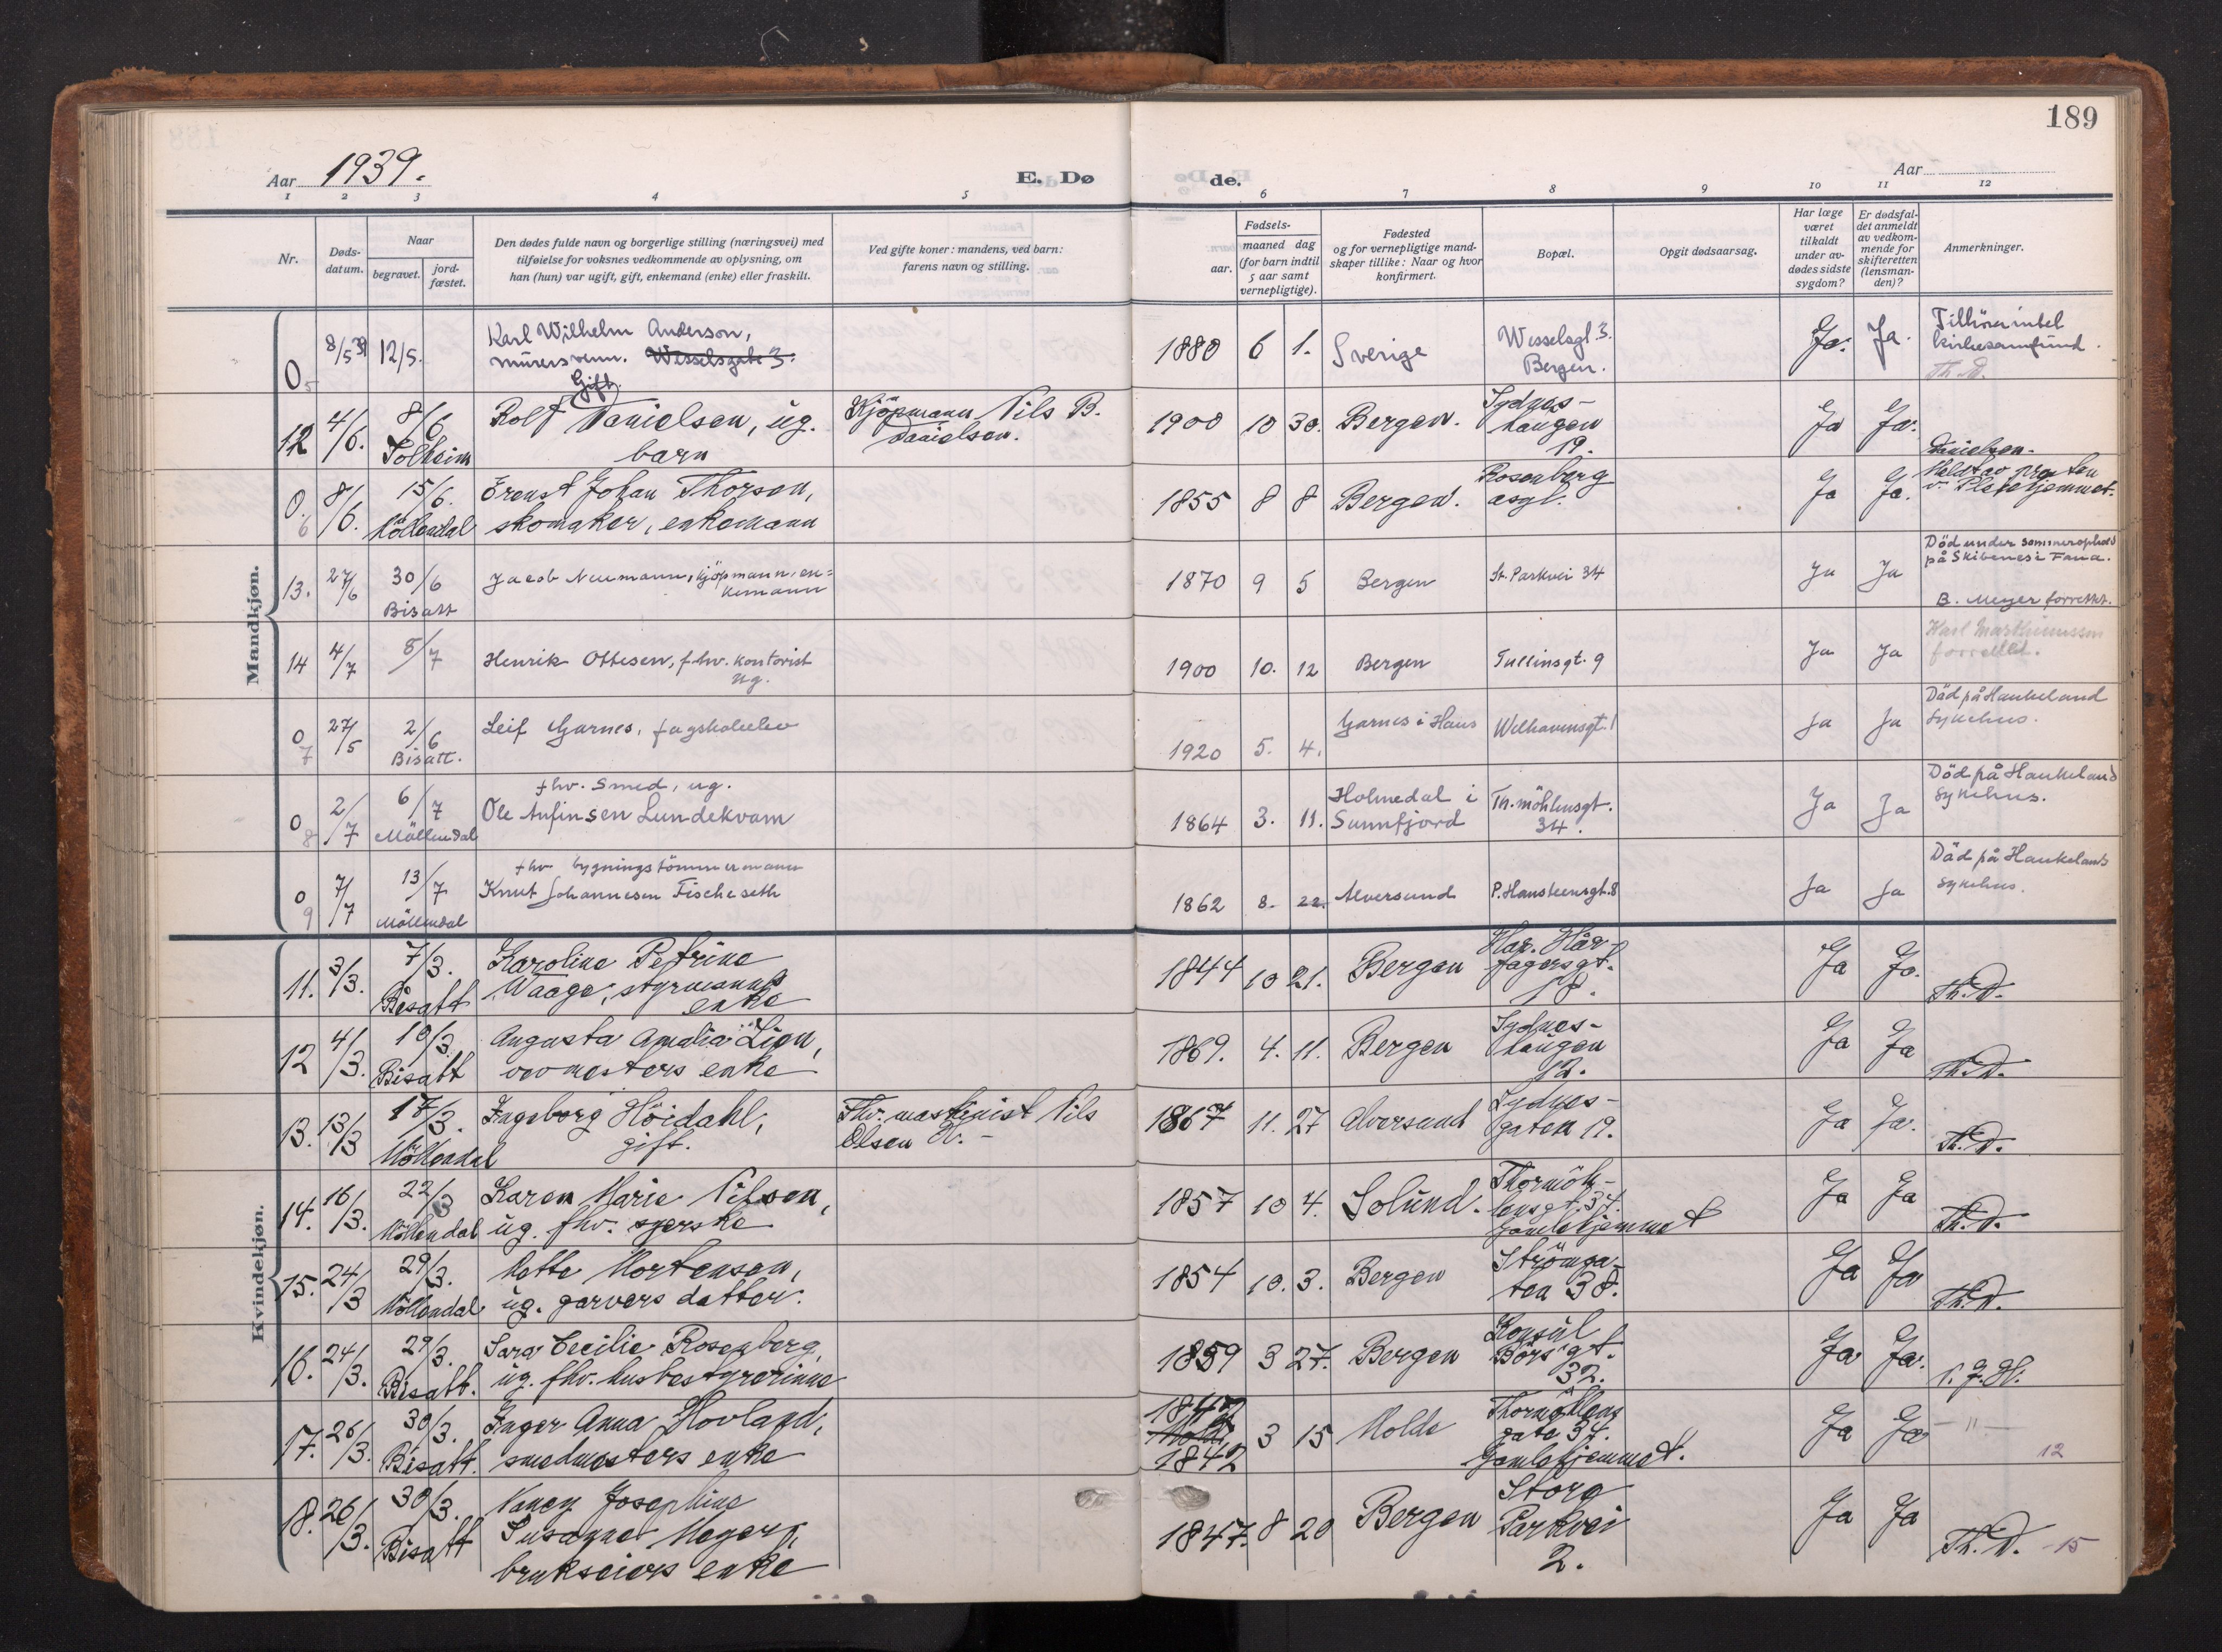 189
Aar 1939.
E. Døde.
Aar
1 2 3 4 5 6 7 8 9 10 11 12
Nr.
Døds-
datum.
Naar
begravet.
jord-
fæstet.
Den dødes fulde navn og borgerlige stilling (næringsvei) med
tilføielse for voksnes vedkommende av oplysning, om
han (hun) var ugift, gift, enkemand (enke) eller fraskilt.
Ved gifte koner: mandens, ved barn:
farens navn og stilling.
Fødsels-
aar.
maaned dag
(for barn indtil
5 aar samt
vernepligtige).
Fødested
og for vernepligtige mand-
skaper tillike: Naar og hvor
konfirmert.
Bopæl.
Opgit dødsaarsag.
Har læge
været
tilkaldt
under av-
dødes sidste
sygdom?
Er dødsfal-
det anmeldt
av vedkom-
mende for
skifteretten
(lensman-
den)?
Anmerkninger.
Mandkjøn.
0 5 8/5 39 12/5.
Karl Wilhelm Anderson,
murersvenn. Wesselsgate 3.
Gift.
1880 6 1. Sverige
Wesselsgt. 3.
Bergen.
Ja. Ja.
kirkesamfund.
Th. D.
12 4/6. 8/6 Solheim
Rolf Danielsen, ug.
barn
Kjöpmann Nils B.
Danielsen.
1900 10 30. Bergen.
Sydnes-
haugen
19.
Ja Ja.
Danielsen.
0. 6 8/6. 15/6. Möllendal
Ernst Johan Thorsen,
skomaker, enkemann
1855 8 8 Bergen.
Rosenberg
sgt.
Ja Ja.
v. Pleiehjemmet.
13. 27/6 30/6 Bisatt
Jacob Neumann, kjöpmann, en=
kemann
1870 9 5 Bergen St. Parkvei 34
Ja Ja
Död under sommerophold
på Skibenes i Fana.
B. Meyer forrettet.
14 4/7 8/7
Henrik Ottesen, fhv. kontorist
ug.
1900 10. 12 Bergen Tullinsgt. 9
Ja Ja
Karl Marthinussen
forrettet.
0 7 27/5 2/6 Bisatt.
Leif Garnes, fagskoleelev
1920 5. 4. Garnes i Haus Welhavensgt. 1
Ja Ja
Död på Haukeland
Sykehus.
0 8 2/7 6/7 Möllendal
fhv. Smed, ug.
Ole Anfinsen Lundekvam
1864 3. 11.
Holmedal i
Sunnfjord
Th. möhlensgt.
34.
Ja Ja
Död på Haukeland
Sykehus.
0 9 7/7 13/7 Möllendal
fhv bygningstömmermann
Knut Johannesen Fischeseth
1862 8. 22. Alversund P. Hansteensgt. 8
Ja Ja
Död på Haukeland
Sykehus.
Kvindekjøn.
11. 3/3. 7/3. Bisatt
Karoline Petrine
Waage, styrmanns
enke
1844 10 21. Bergen
Har. Hår-
fagersgt.
18.
Ja Ja.
Th. D.
12 4/3. 10/3. Bisatt
Augusta Amalia Lien,
vevmesters enke
1869. 4. 11. Bergen
Sydnes-
haugen
12.
Ja Ja
Th. D.
13. 13/3 17/3. Möllendal
Ingeborg Höidahl,
gift.
Fhv. maskinist Nils
Olsen H. –
1867 11. 27 Alversund
Sydnes-
gaten 19.
Ja Ja.
Th. D.
14. 16/3. 22/3 Möllendal
Karen Marie Nilsen,
ug. fhv. syerske
1857 10 4. Solund.
Thormöh-
lensgt. 34.
Gamlehjemmet
Ja Ja
Th. D.
15. 24/3 29/3. Möllendal
Mette Mortensen,
ug. garvers datter.
1854 10. 3. Bergen
Strömga-
ten 38.
Ja Ja
Th. D.
16. 24/3. 29/3. Bisatt.
Sara Cecilie Rosenberg,
ug. fhv. husbestyrerinne
1859 3 27. Bergen
Konsul
Börs gt.
32.
Ja Ja.
17. 26/3. 30/3. Bisatt.
Inger Anna Hovland,
smedmesters enke
1842 3 15 Molde
Thormöhlens
gate 34.
Gamlehjemmet.
Ja Ja
– " –
12
18. 26/3. 30/3. Bisatt
Nancy Josephine
Susanne Meyer,
brukseiers enke
1847. 8 20 Bergen
Store
Parkvei
2.
Ja Ja
Th. D. -15